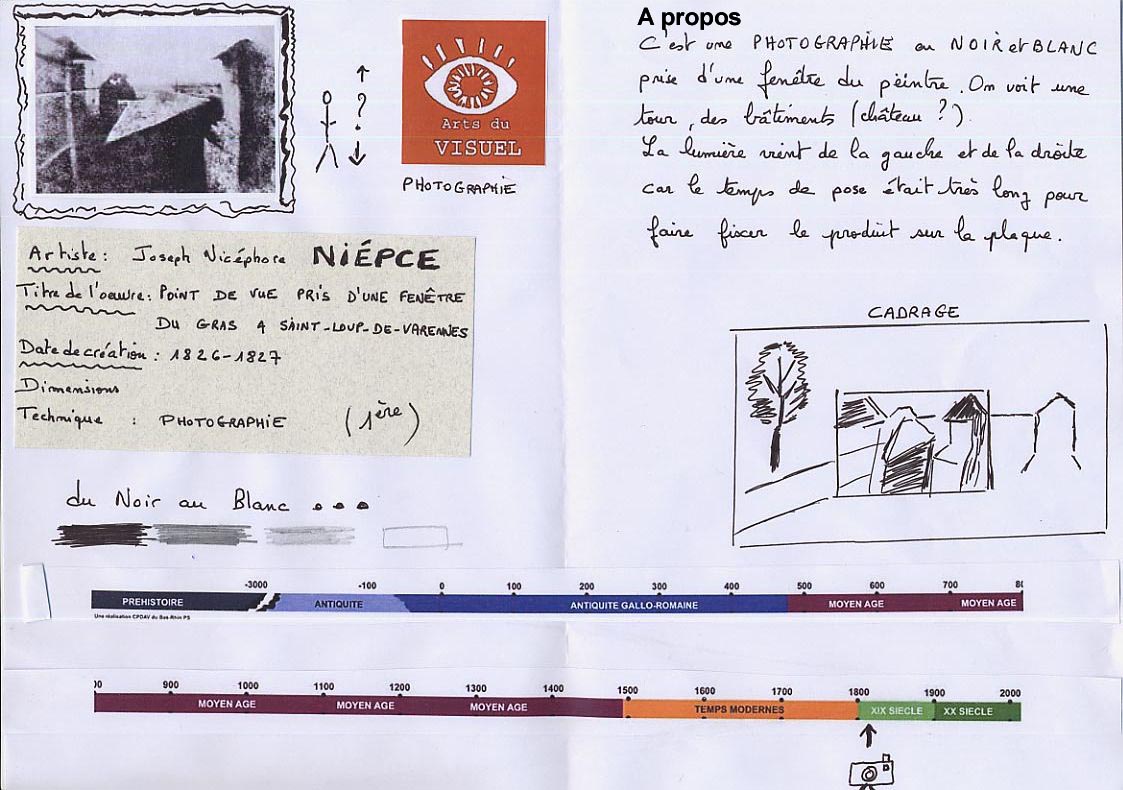 ?
Arts du
VISUEL
PHOTOGRAPHIE
Artiste : Joseph Nicéphore NIÉPCE
Titre de l'oeuvre : POINT DE VUE PRIS D'UNE FENÊTRE
DU GRAS A SAINT-LOUP-DE-VARENNES
Date de création : 1826-1827
Dimensions
Technique : PHOTOGRAPHIE (1ère)
du Noir au Blanc ...
A propos
C'est une PHOTOGRAPHIE en NOIR et BLANC
prise d'une fenêtre du peintre. On voit une
tour, des bâtiments (château ?).
La lumière vient de la gauche et de la droite
car le temps de pose était très long pour
faire fixer le produit sur la plaque.
CADRAGE
-3000 -100 0 100 200 300 400 500 600 700
PREHISTOIRE ANTIQUITE ANTIQUITE GALLO-ROMAINE MOYEN AGE MOYEN AGE
Une réalisation CPDAV du Bas-Rhin PS
900 1000 1100 1200 1300 1400 1500 1600 1700 1800 1900 2000
MOYEN AGE MOYEN AGE MOYEN AGE TEMPS MODERNES XIX SIECLE XX SIECLE